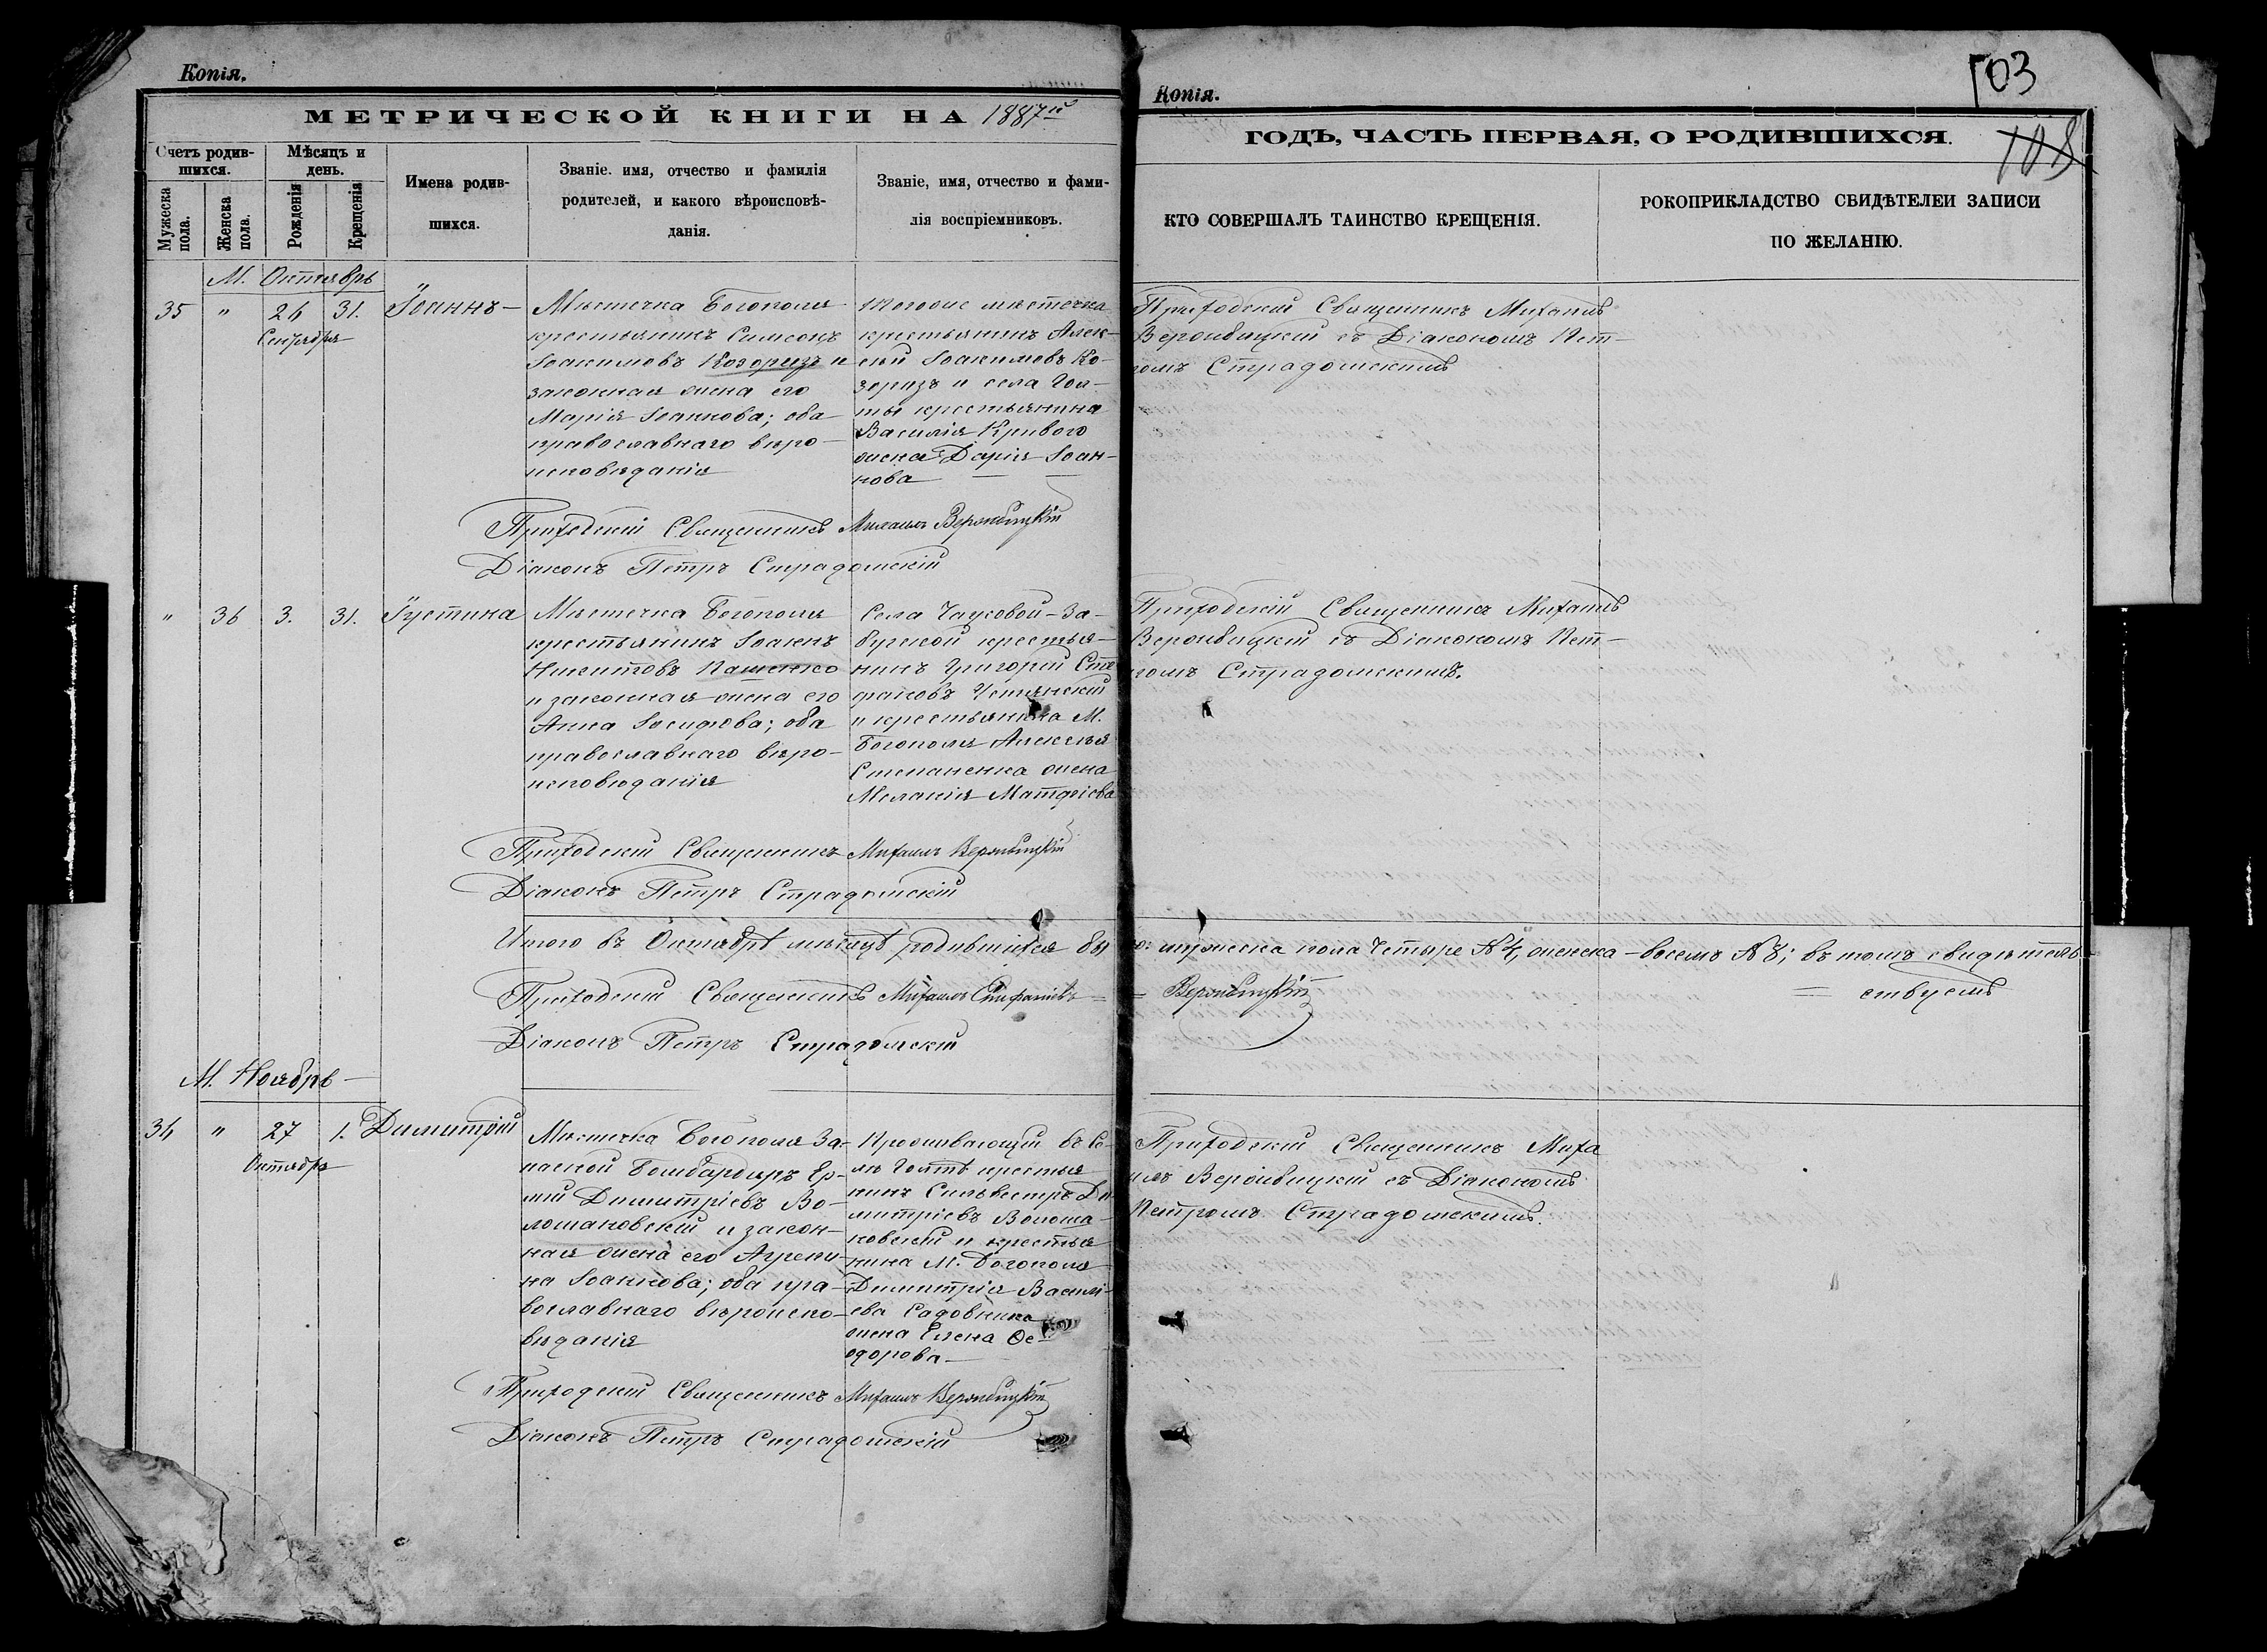 Копія.
МЕТРИЧЕСКОЙ КНИГИ НА 1887й
Счетъ родив-
шихся.
Мѣсяцъ и
день.
Мужеска
пола.
Женска
пола.
Рожденія
Крещенія
Имена родив-
шихся.
Званіе. имя, отчество и фамилія
родителей, и какого вѣроисповѣ-
данія.
Званіе, имя, отчество и фами-
лія воспріемниковъ.
М. Октябрь
35 " 26 31.
Сентября
Іоаннъ
Мѣстечка Богополя
крестьянинъ Симеонъ
Іоакимовъ Козоризъ и
законная жена его
Марія Іоаннова; оба
православнаго вѣро-
исповѣданія
Тогоже мѣстечка
крестьянинъ Алек-
сѣй Іоакимовъ Ко-
зоризъ и села Гол-
ты крестьянина
Василія Кривого
жена Дарія Іоан-
нова
Приходскій Священникъ Михаилъ Вержбицкій
Діаконъ Петръ Страдомскій
" 36 3. 31. Іустина
Мѣстечка Богополя
крестьянинъ Іоаннъ
Никитовъ Пащенко
и законная жена его
Анна Іосифова; оба
православнаго вѣро-
исповѣданія
Села Чаусовой-За-
бугской крестья-
нинъ Григорій Сте
фановъ
и крестьянина М.
Богополя Алексѣя
Степаненка жена
Меланія Матѳіева
Приходскій Священникъ Михаилъ Вержбицкій
Діаконъ Петръ Страдомскій
Итого въ Октябрѣ мѣсяцѣ родившихся бы
Приходскій Священникъ Михаилъ =
Діаконъ Петръ Страдомскій
М. Ноябрь
34 " 27 1. Димитрій
Октября
Мѣстечка Богополя За-
пасной Бомбардиръ Ер-
мій Димитріевъ Во-
лошановскій и закон-
ная жена его Агрепи-
на Іоаннова; оба пра-
вославнаго вѣроиспо-
вѣданія
Проживающій въ Се-
лѣ Голтѣ крестья
нинъ Сильвестръ Ди-
митріевъ Волоша-
новскій и крестья
нина М. Богополя
Димитрія Василі-
ева Садовника
жена Елена Ѳе-
одорова
Приходскій Священникъ Михаилъ Вержбицкій
Діаконъ Петръ Страдомскій
Копія.
103
ГОДЪ, ЧАСТЬ ПЕРВАЯ, О РОДИВШИХСЯ.
108
КТО СОВЕРШАЛЪ ТАИНСТВО КРЕЩЕНІЯ.
РОКОПРИКЛАДСТВО СВИДѢТЕЛЕИ ЗАПИСИ
ПО ЖЕЛАНІЮ.
Приходскій Священникъ Михаилъ
Вержбицкій съ Діакономъ Пет-
ромъ Страдомскимъ
Приходскій Священникъ Михаилъ
Вержбицкій съ Діакономъ Пет-
ромъ Страдомскимъ.
ло: мужеска пола Четыре № 4, женска - восемь № 8; въ томъ свидѣтель-
= Вержбицкій = ствуемъ
Приходскій Священникъ Миха
илъ Вержбицкій съ Діакономъ
Петромъ Страдомскимъ.